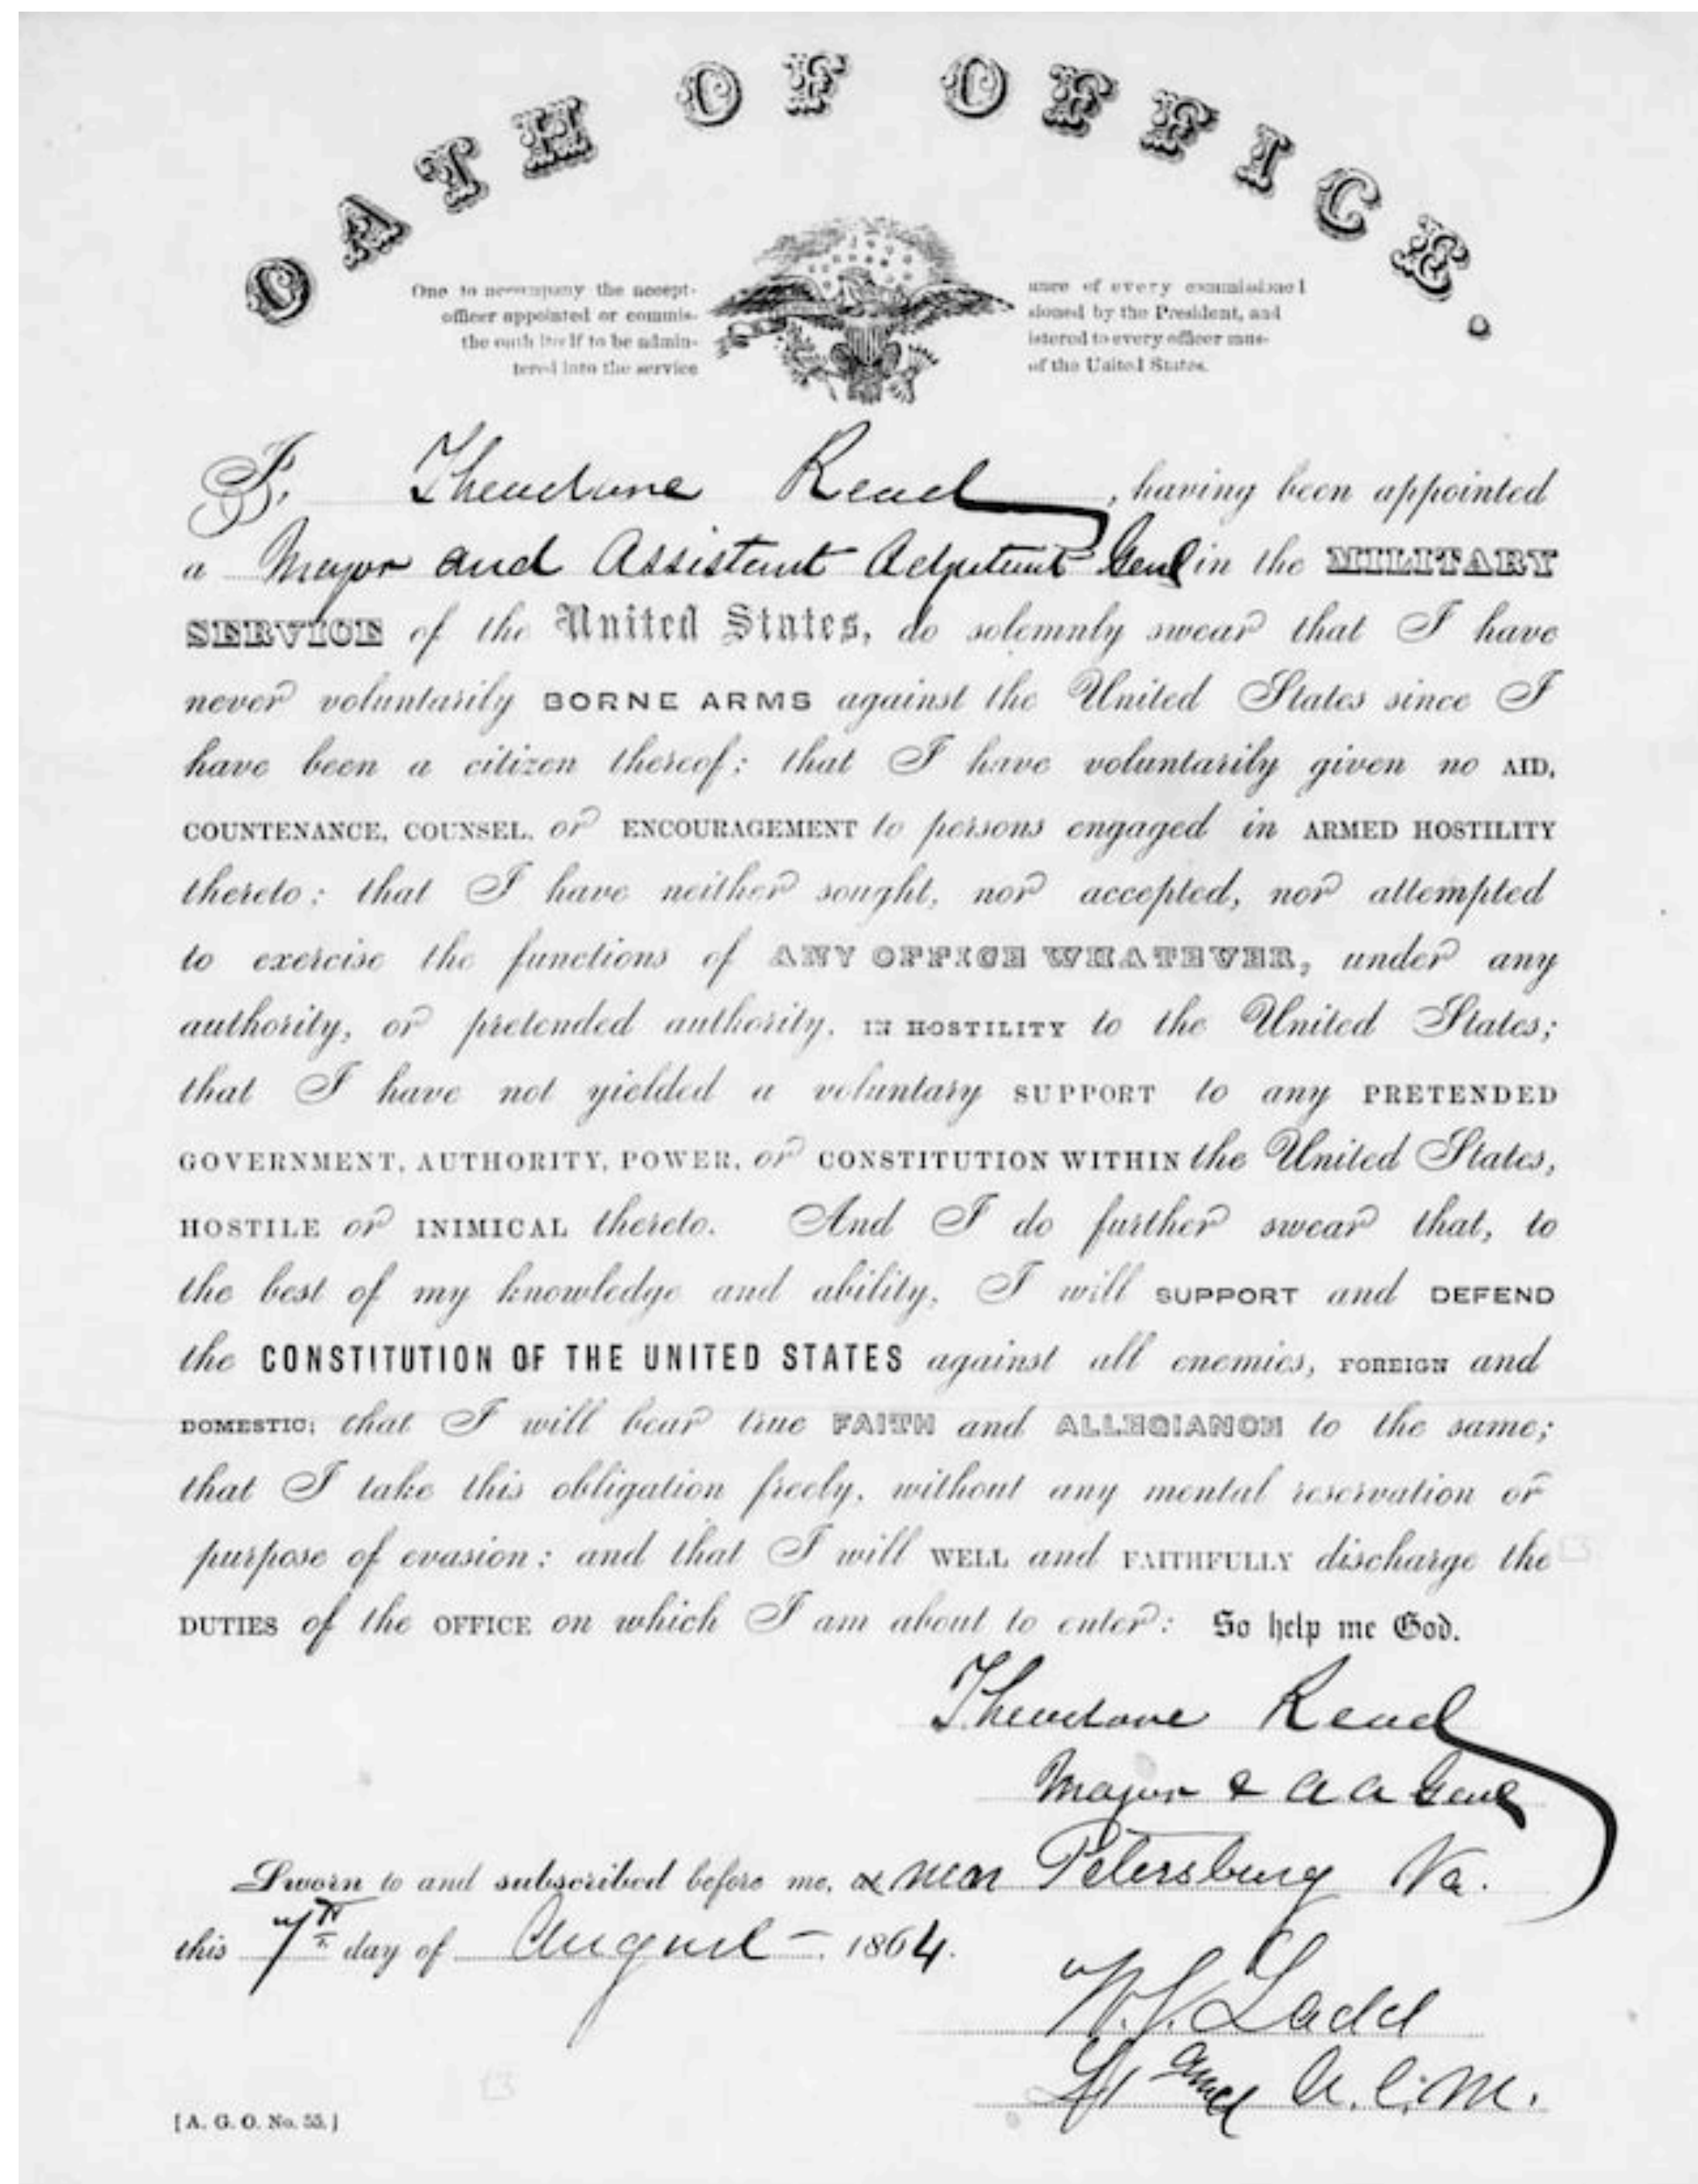 OATH OF OFFICE.
One to accompany the accept-ance of every commissioned
officer appointed or commis-sioned by the President, and
the oath itself to be admin-istered to every officer mus-
tered into the service of the United States.
I, Theodore Read, having been appointed
a Major and Assistant Adjutant Genl in the MILITARY
SERVICE of the United States, do solemnly swear that I have
never voluntarily BORNE ARMS against the United States since I
have been a citizen thereof; that I have voluntarily given no AID,
COUNTENANCE, COUNSEL, or ENCOURAGEMENT to persons engaged in ARMED HOSTILITY
thereto; that I have neither sought, nor accepted, nor attempted
to exercise the functions of ANY OFFICE WHATEVER, under any
authority, or pretended authority, IN HOSTILITY to the United States;
that I have not yielded a voluntary SUPPORT to any PRETENDED
GOVERNMENT, AUTHORITY, POWER, or CONSTITUTION WITHIN the United States,
HOSTILE or INIMICAL thereto. And I do further swear that, to
the best of my knowledge and ability, I will SUPPORT and DEFEND
the CONSTITUTION OF THE UNITED STATES against all enemies, FOREIGN and
DOMESTIC; that I will bear true FAITH and ALLEGIANCE to the same;
that I take this obligation freely, without any mental reservation or
purpose of evasion; and that I will WELL and FAITHFULLY discharge the
DUTIES of the OFFICE on which I am about to enter: So help me God.
Theodore Read
Major & A A Genl
Sworn to and subscribed before me, at near Petersburg Va.
this 7th day of August 1864.
Ladd
A. C. M.
[A. G. O. No. 55.]